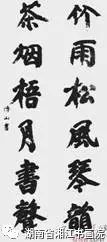 竹雨松風琴韻
茶烟梧月書聲
傅山書
湖南省湘江书画院